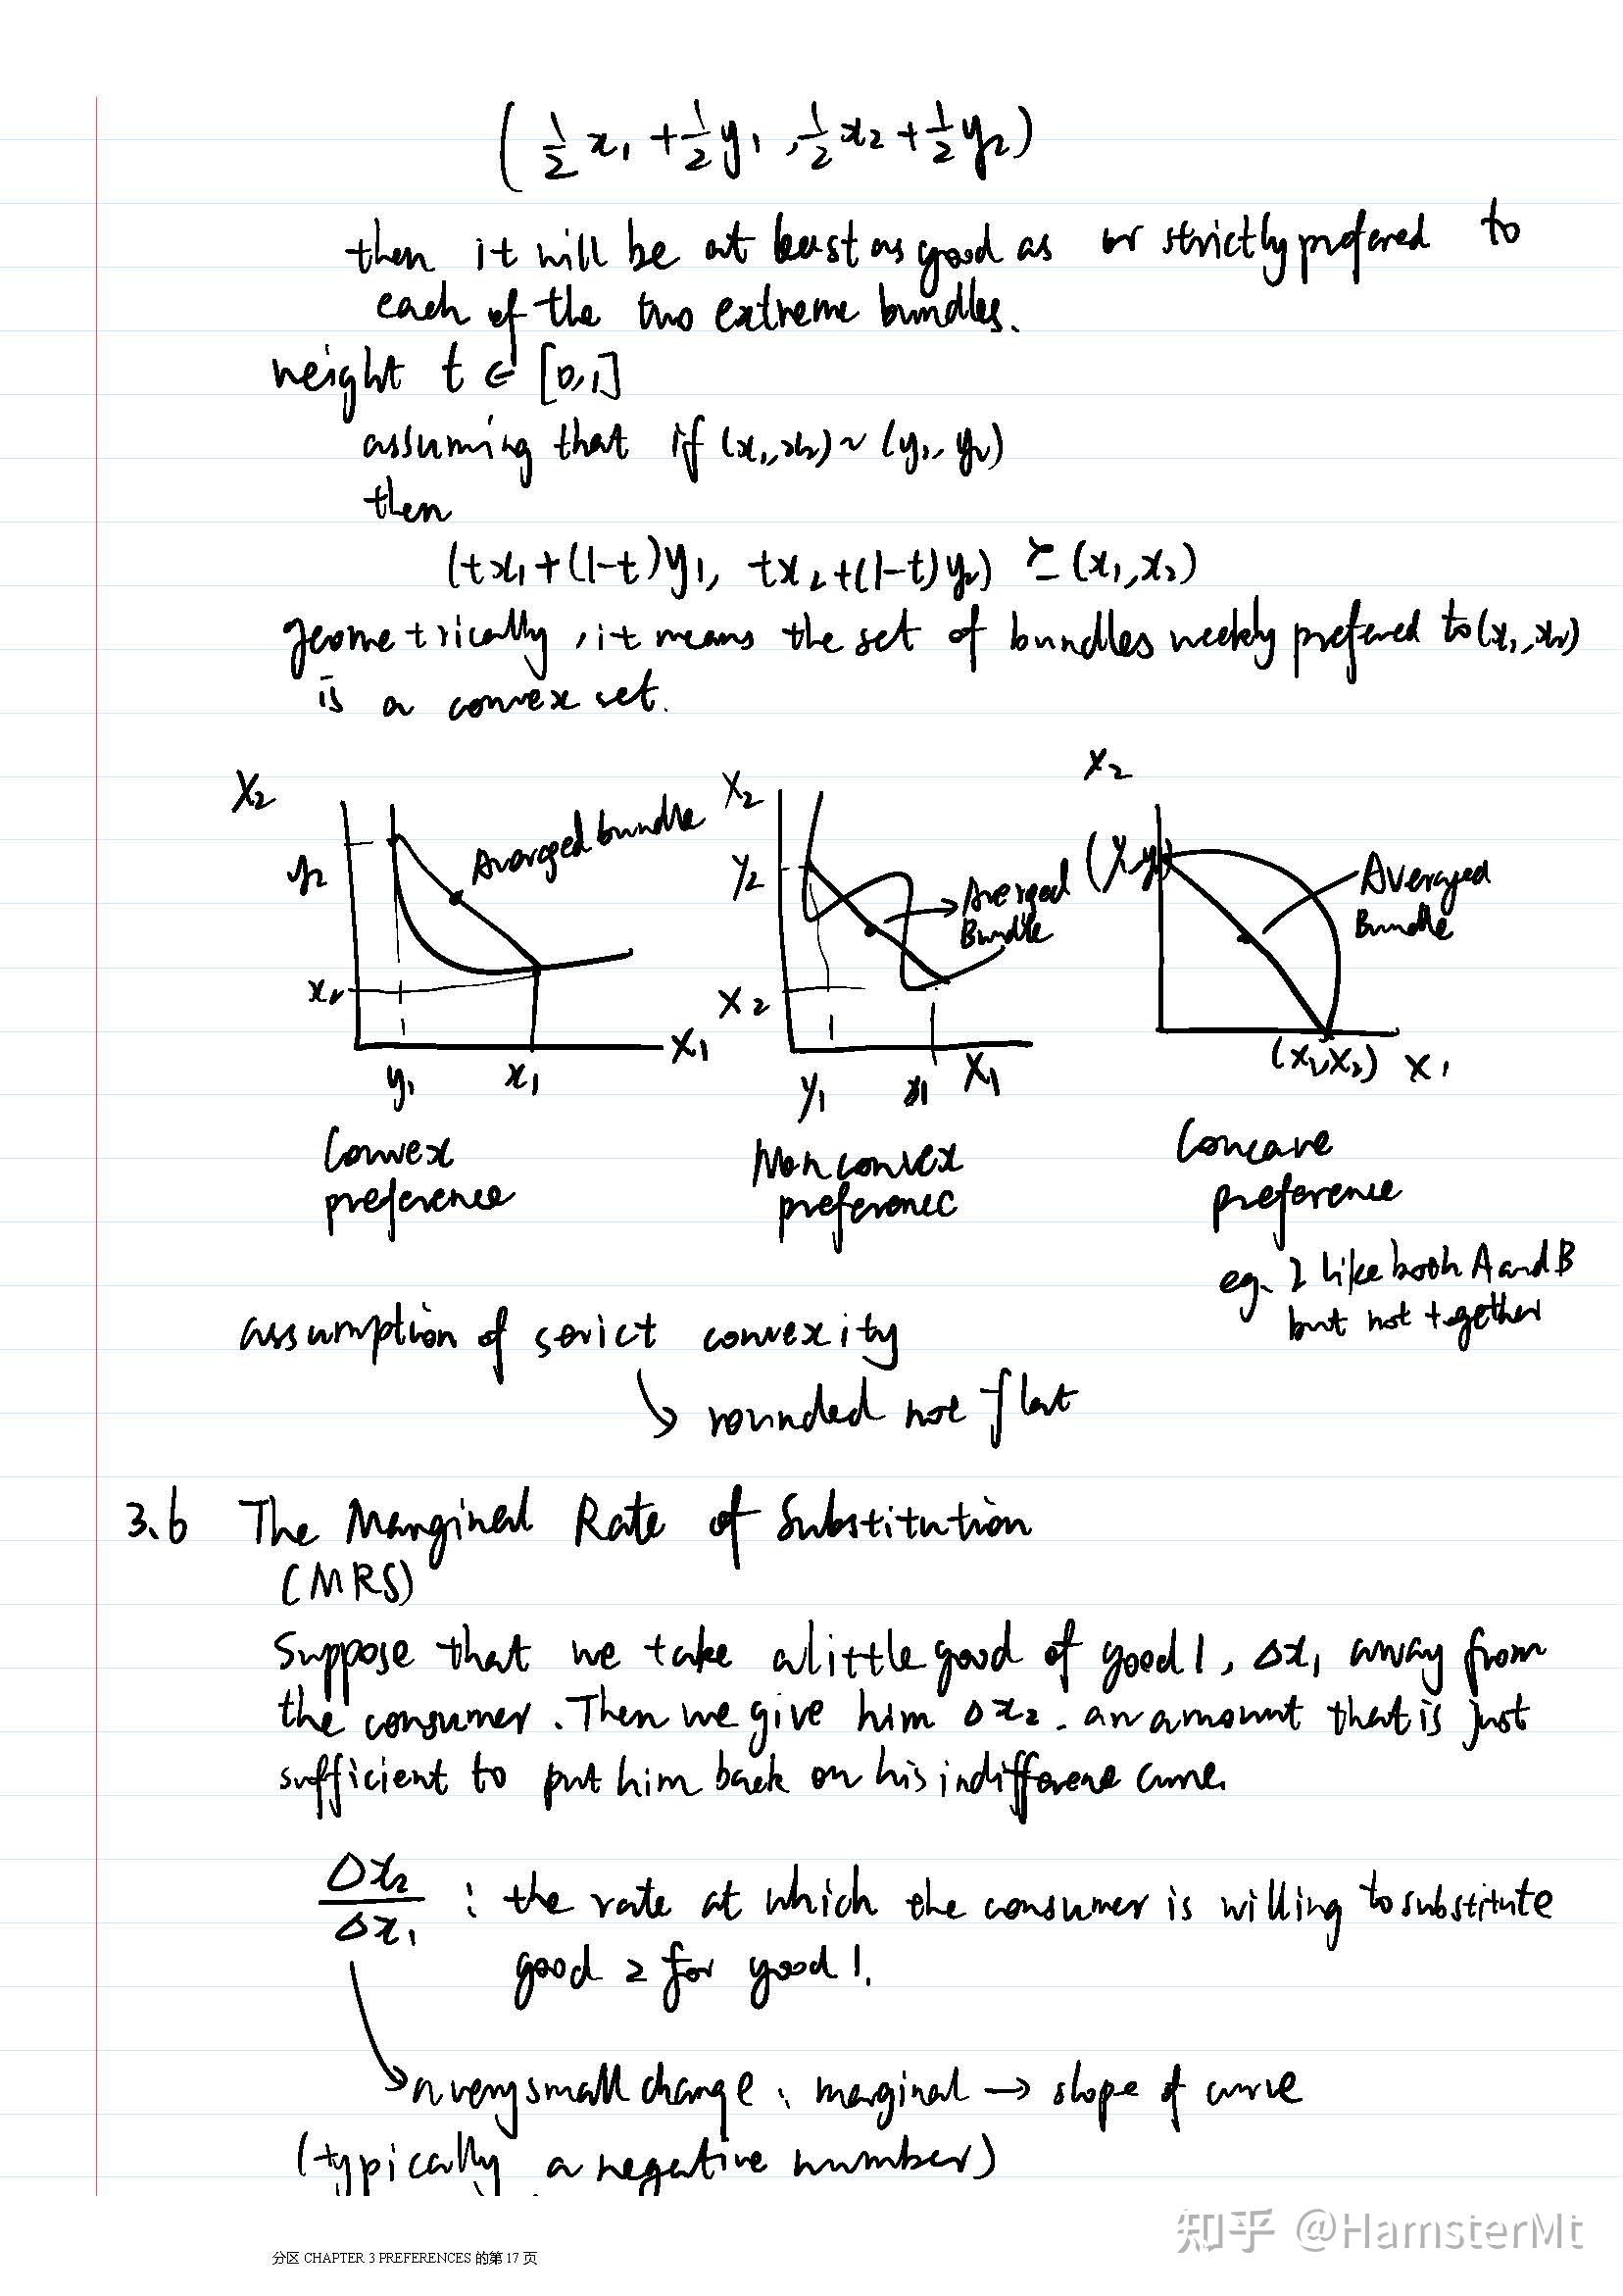 (½x₁ + ½y₁, ½x₂ + ½y₂)
then it will be at least as good as or strictly prefered to
each of the two extreme bundles.
weight t ∈ [0,1]
assuming that if (x₁,x₂) ~ (y₁,y₂)
then
(tx₁+(1-t)y₁, tx₂+(1-t)y₂) ⪰ (x₁,x₂)
geometrically, it means the set of bundles weekly prefered to (x₁,x₂)
is a convex set.
X₂
y₂
x₂
Averaged bundle
y₁
x₁
X₁
Convex
preference
X₂
y₂
X₂
Averged
Bundle
y₁
x₁
X₁
Nonconvex
preference
X₂
Averaged
Bundle
(x₁,x₂)
X₁
Concave
preference
eg. I like both A and B
but not together
assumption of strict convexity
↘ rounded not flat
3.6 The Marginal Rate of Substitution
(MRS)
Suppose that we take a little good of good 1, Δx₁ away from
the consumer. Then we give him Δx₂. an amount that is just
sufficient to put him back on his indifference curve.
Δx₂/Δx₁ : the rate at which the consumer is willing to substitute
good 2 for good 1.
a very small change: marginal → slope of curve
(typically a negative number)
知乎 @HamsterMt
分区 CHAPTER 3 PREFERENCES 的第 17 页